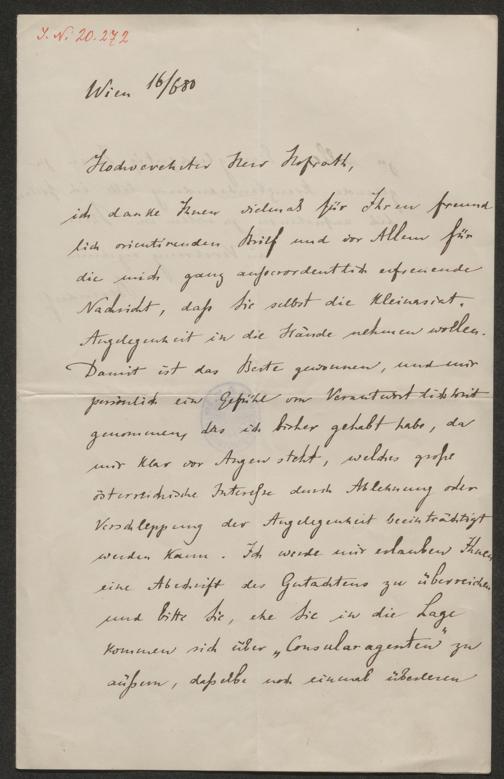 J. N. 20.272
Wien 16/6 80
Hochverehrter Herr Hofrath,
ich danke Ihnen vielmals für Ihren freund
lich orientirenden Brief und vor Allem für
die mich ganz außerordentlich erfreuende
Nachricht, daß Sie selbst die Kleinasiat.
Angelegenheit in die Hände nehmen wollen.
Damit ist das Beste gewonnen, und mir
persönlich ein Gefühl von Verantwortlichkeit
genommen, das ich bisher gehabt habe, da
mir klar vor Augen steht, welches große
österreichische Interesse durch Ablehnung oder
Verschleppung der Angelegenheit beeinträchtigt
werden kann. Ich werde mir erlauben Ihnen
eine Abschrift des Gutachtens zu überreichen
und bitte Sie, ehe Sie in die Lage
kommen sich über „Consularagenten" zu
äußern, dasselbe noch einmal überlesen